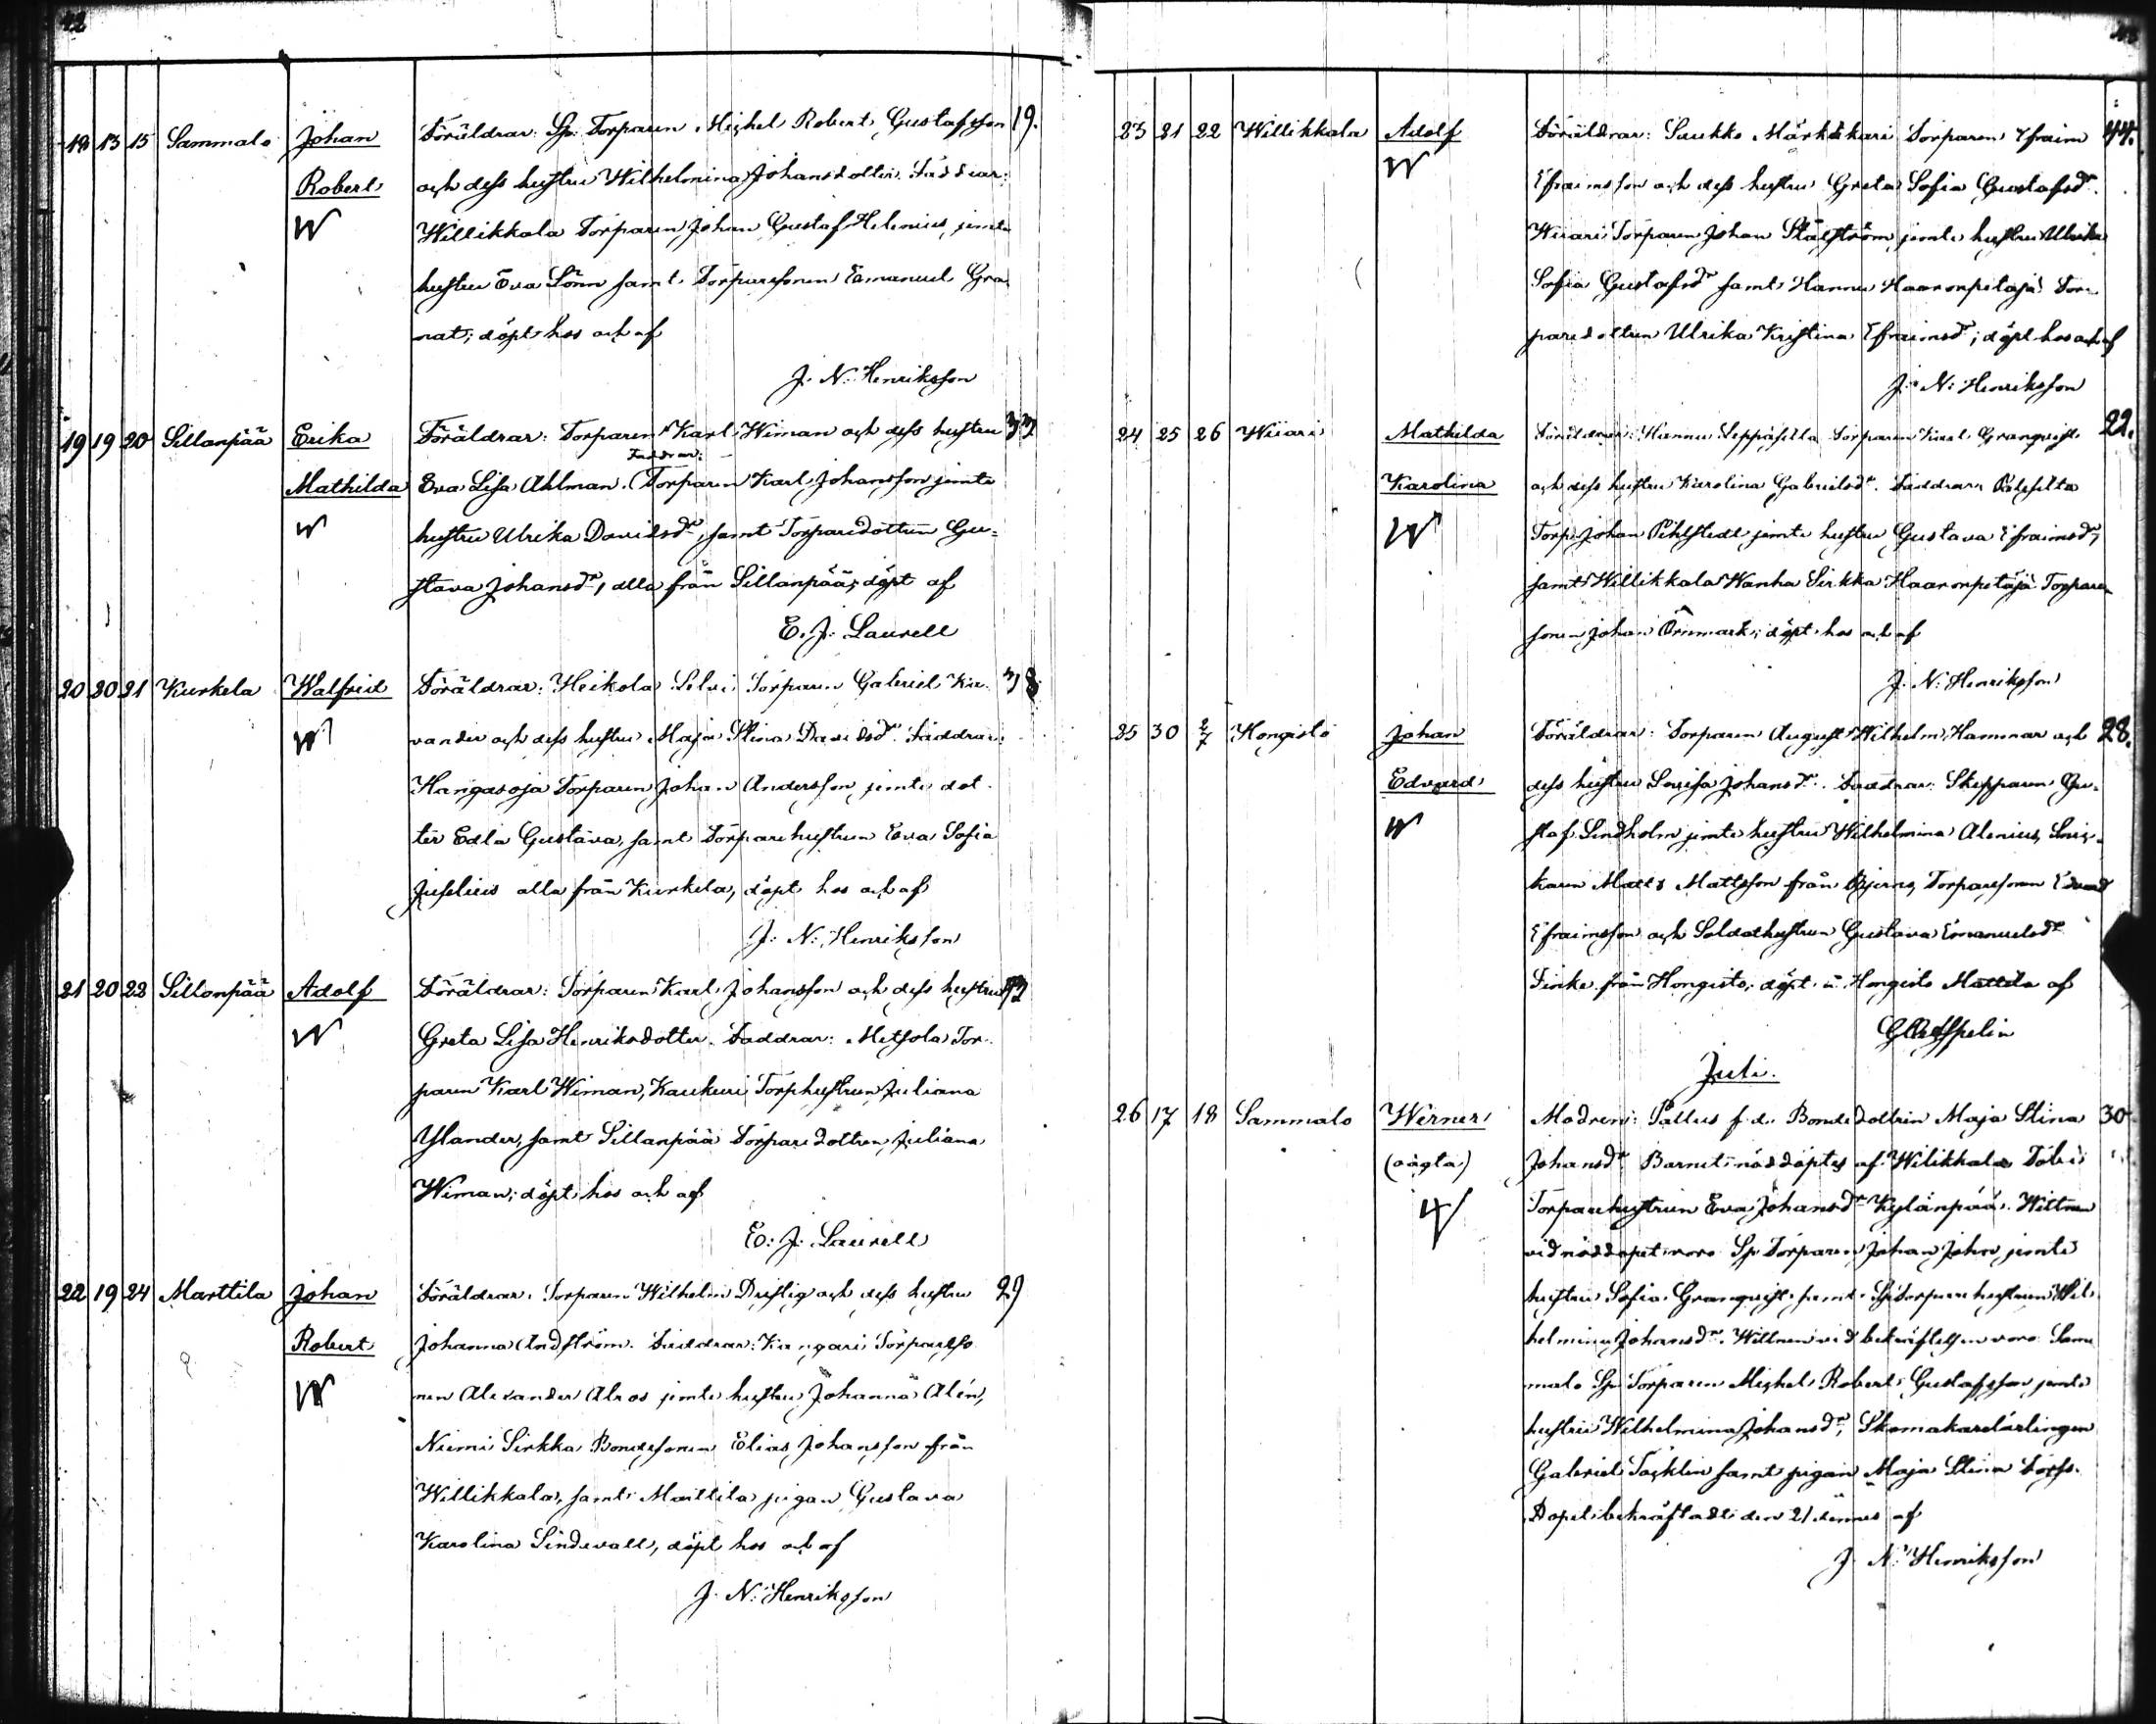 42
18 13 15 Sammalo Johan Föräldrar: Sp. Torparen Michel Robert Gustafsson 19.
Robert och dess hustru Wilhelmina Johansdotter. Faddrar:
W Willikkala Torparen Johan Gustaf Helenius jemte
hustru Eva Lönn samt Torparesonen Emanuel Gra-
nat; döpt hos och af
J. N. Henriksson
19 19 20 Sillanpää Erika Föräldrar: Torparen Karl Wiman och dess hustru
Mathilda Eva Lisa Ahlman. (Faddrar: Torparen Karl Johansson jemte
W hustru Ulrika Davidsdr, samt Torparedottren Gu-
stava Johansdr, alla från Sillanpää; döpt af
E. J. Laurell
20 20 21 Kurkela Walfrid Föräldrar: Heikola Selvi Torparen Gabriel
W vander och dess hustru Maja Stina Davidsdr. Faddrar:
Hangasoja Torparen Johan Andersson jemte dot-
ter Edla Gustava, samt Torparehustrun Eva Sofia
Juselius alla från Kurkela, döpt hos och af
J. N. Henriksson
21 20 22 Sillanpää Adolf Föräldrar: Torparen Karl Johansson och dess hustru
W Greta Lisa Henriksdotter. Faddrar: Metsola Tor-
paren Karl Wiman, Kaukuri Torphustrun Juliana
Ylander, samt Sillanpää Torparedottren Juliana
Wiman; döpt hos och af
E. J. Laurell
22 19 24 Marttila Johan Föräldrar: Torparen Wilhelm Driftig och dess hustru 29
Robert Johanna Lindström. Faddrar: Kangari Torpareso-
W nen Alexander Alros jemte hustru Johanna Alén,
Niemi Sirkka Bondesonen Elias Johansson från
Willikkala, samt Marttila pigan Gustava
Karolina Lindevall, döpt hos och af
J. N. Henriksson
23 21 22 Willikkala Adolf Föräldrar: Saukko Märkäkari Torparen Efraim 44.
W Efraimsson och dess hustru Greta Sofia Gustafsdr.
Wiiari Torparen Johan Stålström jemte hustru Ulrika
Sofia Gustafsdr samt Hannu Haaronpetäjä Tor-
paredottren Ulrika Kristina Efraimsdr; döpt hos och af
J. N. Henriksson
24 25 26 Wiiari Mathilda Föräldrar: Hannu Seppäsilta Torparen Karl Granqvist 22.
Karolina och dess hustru Karolina Gabrielsdr. Faddrar:
W Torp. Johan Pihlstedt jemte hustru Gustava Efraimsdr,
samt Willikkala Wanha Sirkka Haaronpetäjä Torpare-
sonen Johan Örnmark; döpt hos och af
J. N. Henriksson
25 30 2/7 Hongisto Johan Föräldrar: Torparen August Wilhelm Hammar och 28.
Edvard dess hustru Lovisa Johansdr. Faddrar: Skepparen Gu-
W staf Lindholm jemte hustru Wilhelmina Alenius,
Matts Mattsson från Bjerno, Torparesonen Edvard
Efraimsson och Soldathustrun Gustava Emanuelsdr
från Hongisto; döpt i Hongisto Mattila af
Juli.
26 17 18 Sammalo Werner Modren: Pallus f.d. Bondedottren Maja Stina 30
(oägta) Johansdr. Barnet nöddöptes af Wilikkala
Torparehustrun Eva Johansdr Kylänpää. Wittnen
vid nöddopet voro Sp. Torparen Johan John jemte
hustru Sofia Granqvist samt Sp. Torparehustrun Wil-
helmina Johansdr. Wittnen vid bekräftelsen voro Sam-
malo Sp. Torparen Michel Robert Gustafsson jemte
hustru Wilhelmina Johansdr, Skomakarelärlingen
Gabriel Täcklin samt pigan Maja Stina Forss.
Dopet bekräftadt den 21 dennes af
J. N. Henriksson